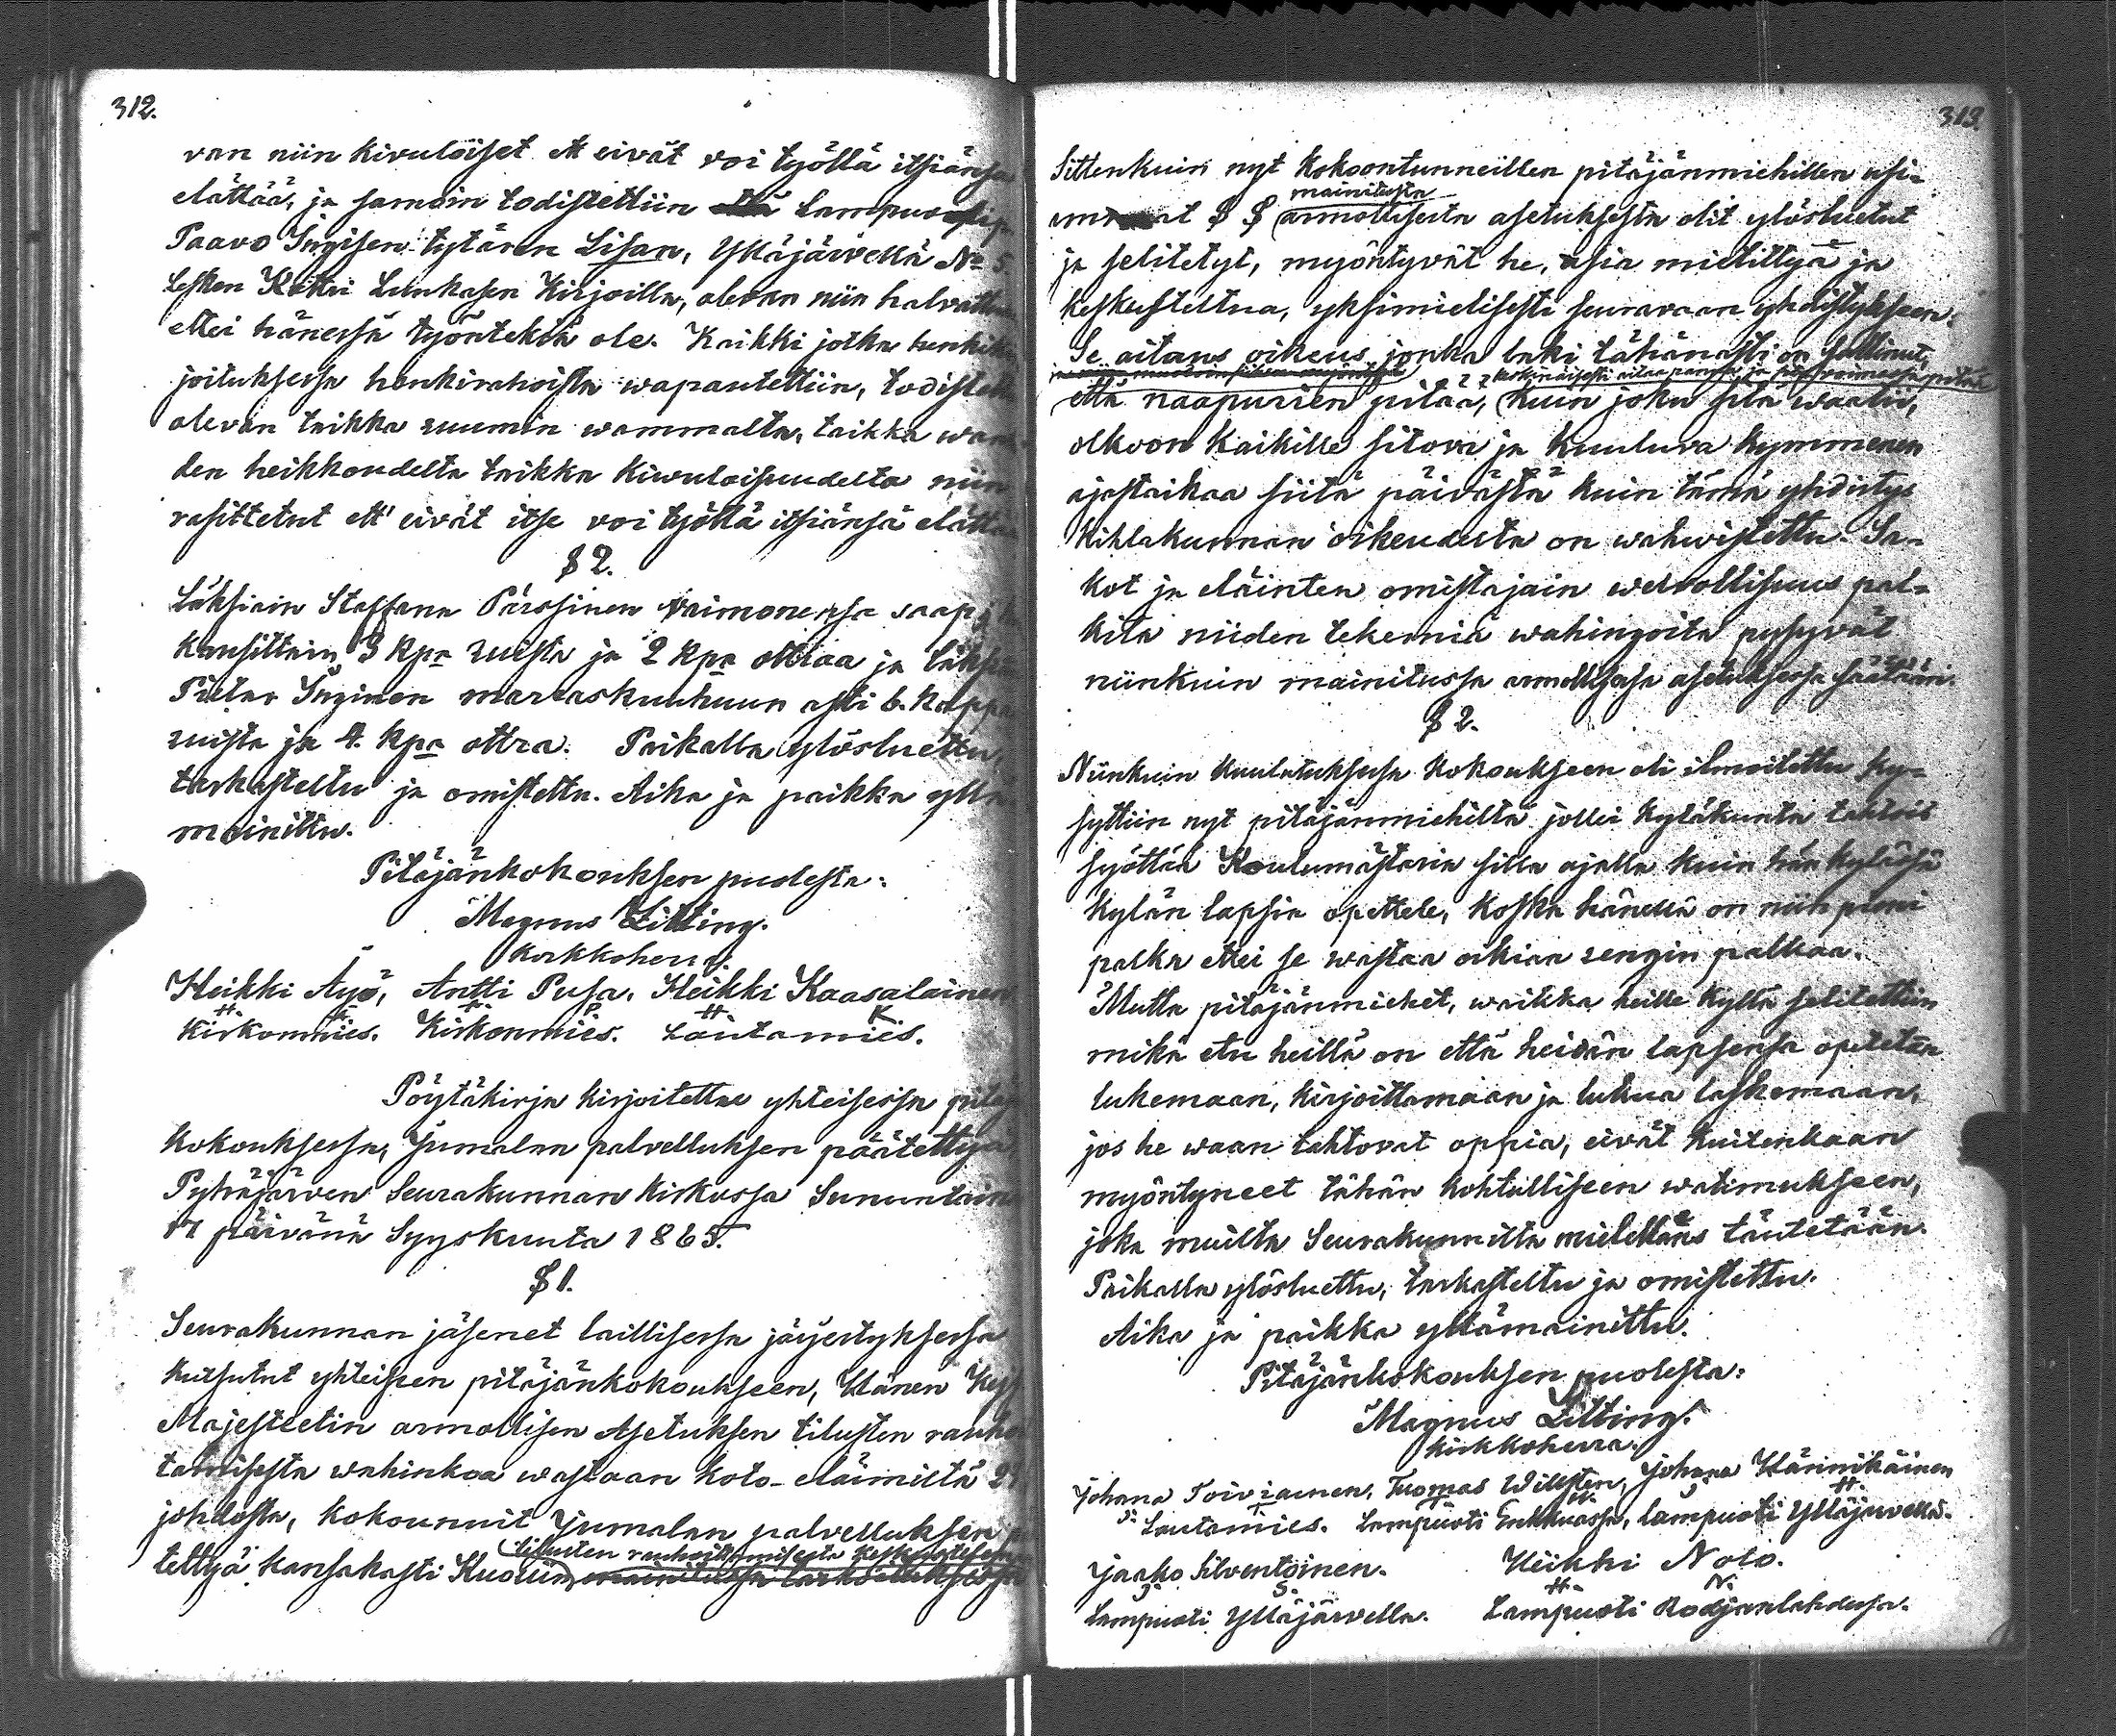 312.
van niin kivulöiset ett eivät voi työllä itsiänsä
elättää, ja samoin todistettiin Lampuodin
Paavo Ingisen tytären Lisan, Ylläjärvellä No 5
Lesken Lunkasen Kirjoilla, olevan niin halvattu
ettei hänessä työntekiä ole. Kaikki jotka henki
joituksessa henkirahoista wapautettiin, todistett
olevan taikka ruumin wammalta, taikka wan
den heikkoudelta taikka kiwuloisuudelta niin
rasittetut ett' eivät itse voi työllä itsiänsä elättä
§ 2.
Läksiäin Staffana Pärssinen Vaimonensa saapi
kuusittain 3 kpa ruista ja 2 kpa ottraa ja Läksiä
Pietar Inginen marraskuuhuun asti 6. kappa
ruista ja 4. kpa ottra. Paikalla ylösluettu,
tarkasteltu ja omistettu. Aika ja paikka yllä
mainittu.
Pitäjänkokouksen puolesta:
Magnus Litting.
kirkkoherra.
Heikki Äyö, Antti Pusa, Heikki Kaasalainen
H Ä A P H K
Kirkonmies. Kirkonmies. Lautamies.
Pöytäkirja kirjoitettu yhteisessä pitäj
kokouksessa, Jumalan palvelluksen päätettyä,
Pyhäjärven Seurakunnan kirkossa Sununtaina
17 päivänä Syyskuuta 1865.
§ 1.
Seurakunnan jäsenet laillisessa järjestyksessä
kutsutut yhteiseen pitäjänkokoukseen, Hänen Keis
Majesteetin armollisen Asetuksen tilusten rauho
tamisesta wahinkoa wastaan koto-eläimiltä
johdosta, kokounnuit Jumalan palvelluksen pä
tilusten rauhoittamisesta keskustele
tettyä kansakasti mainitussa tarkoituksessa
313.
Sittenkuin nyt kokoontunneillen pitäjänmiehillen usi-
mainitusta
at § § armollisesta asetuksesta olit ylösluetut
ja selitetyt, myöntyvät he, asia mielittyä ja
keskusteltua, yksimielisesti seuravaan yhdistykseen.
Se aitaus oikeus jonka laki tähänasti on sallinut,
että naapurien pitää, kuin joku sitä waatii,
olkoon kaikille sitova ja kuuluva kymmenen
ajastaikaa siitä päivästä kuin tämä yhdistys
Kihlakunnan oikeudesta on wahwistettu. Sa-
kot ja eläinten omistajain welvollisuus pal-
kita niiden tekemiä wahingoita pysyvät
niinkuin mainitussa armollisessa asetuksessa säätään.
§ 2.
Niinkuin kuulutuksessa kokoukseen oli ilmoitettu ky-
syttiin nyt pitäjänmiehiltä jollei kyläkunta tahtois
syöttää Koulumästaria sillä ajalla kuin hän kylässä
kylän lapsia opettele, koska hänellä on niin pieni
palka ettei se wastaa oikian rengin palkaa.
Mutta pitäjänmiehet, waikka heille kyllä selitettiin
mikä etu heillä on että heidän lapsensa opetetan
lukemaan, kirjoittamaan ja lukua laskemaan,
jos he waan tahtovat oppia, eivät kuitenkaan
myöntyneet tähän kohtulliseen watimukseen,
joka muilta Seurakunnilta mielellans täutetään.
Paikalla ylösluettu, tarkasteltu ja omistettu.
Aika ja paikka yllämainittu.
Pitäjänkokouksen puolesta:
Magnus Litting.
kirkkoherra.
Johana Toiviainen, Tuomas Willsten, Johana Hännikäinen
J. T. T W. J H.
Lautamies. Lampuoti Enkkuassa, lampuoti Ylläjärvellä.
Jaako Silventoinen. Heikki Nolo.
J S. H N.
Lampuoti Ylläjärvellä. Lampuoti Rodjanlahdessa.